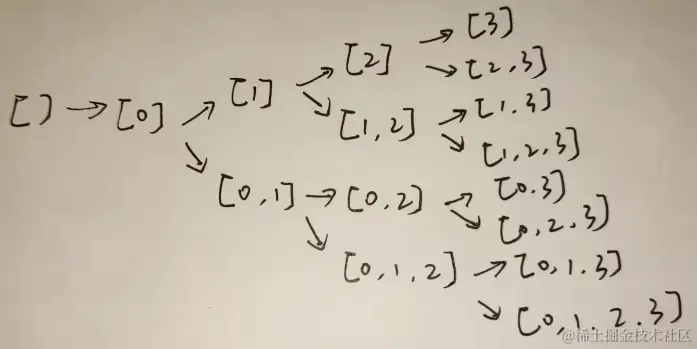 [ ] → [0] → [1] → [2] → [3]
→ [2.3]
→ [1,2] → [1.3]
→ [1,2,3]
→ [0,1] → [0,2] → [0.3]
→ [0,2,3]
→ [0,1,2] → [0,1.3]
→ [0,1.2.3]
@稀土掘金技术社区